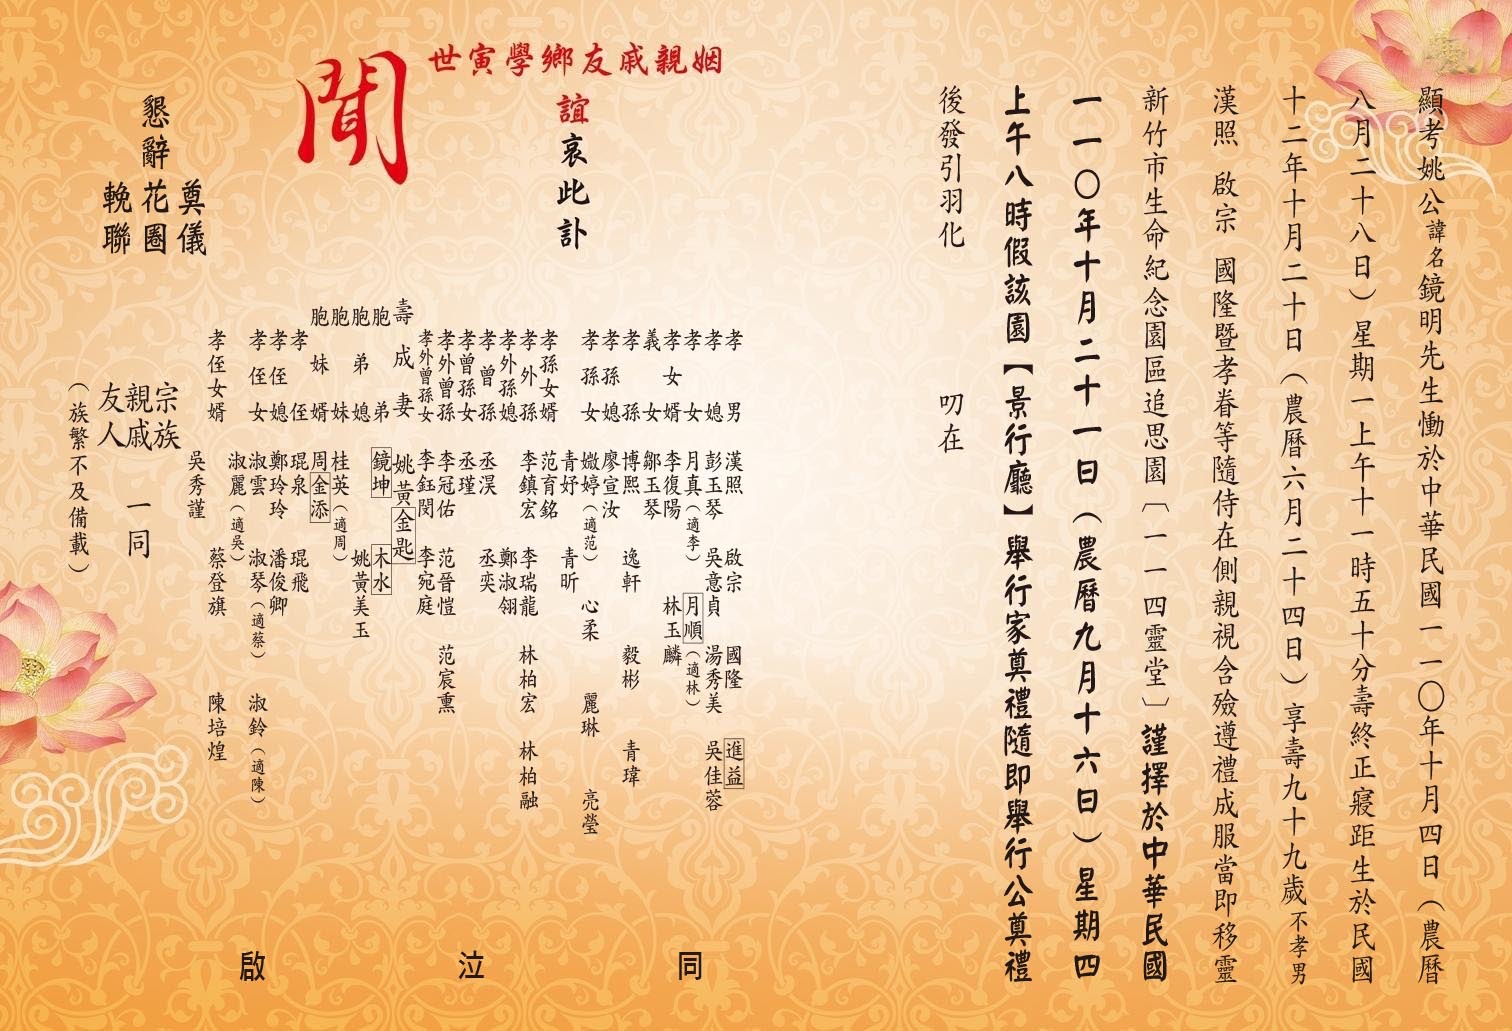 顯考姚公諱名鏡明先生慟於中華民國一一〇年十月四日(農曆
八月二十八日)星期一上午十一時五十分壽終正寢距生於民國
十二年十月二十日(農曆六月二十四日)享壽九十九歲不孝男
漢照 啟宗 國隆暨孝眷等隨侍在側親視含殮遵禮成服當即移靈
新竹市生命紀念園區追思園〔一一四靈堂〕謹擇於中華民國
一一〇年十月二十一日(農曆九月十六日)星期四
上午八時假該園【景行廳】舉行家奠禮隨即舉行公奠禮
後發引羽化 叨在
姻親戚友鄉學寅世
誼哀此訃
聞
孝男 漢照 啟宗 國隆 進益
孝媳 彭玉琴 吳意貞 湯秀美 吳佳蓉
孝女 月真(適李) 月順(適林)
孝女婿 李復陽 林玉麟
義女 鄒玉琴
孝孫 博熙 逸軒 毅彬 青瑋
孝孫媳 廖宣汝
孝孫女 媺婷(適范) 心柔 麗琳 亮瑩
青妤 青昕
孝孫女婿 范育銘
孝外孫 李鎮宏 李瑞龍 林柏宏 林柏融
孝外孫媳 鄭淑翎
孝曾孫 丞淏 丞奕
孝曾孫女 丞瑾
孝外曾孫 李冠佑 范晉愷 范宸熏
孝外曾孫女 李鈺閔 李宛庭
壽成妻 姚黃金匙
胞弟 鏡坤 木水
胞弟媳 姚黃美玉
胞妹 桂英(適周)
胞妹婿 周金添
孝侄 琨泉 琨飛
孝侄媳 鄭玲玲 潘俊卿
孝侄女 淑雲 淑琴(適蔡) 淑鈴(適陳)
淑麗(適吳)
孝侄女婿 蔡登旗 陳培煌
吳秀謹
宗族
親戚 一同
友人
(族繁不及備載)
奠儀
懇辭花圈
輓聯
同 泣 啟